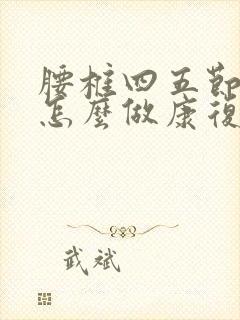 腰椎四五節
怎麼做康復
武斌